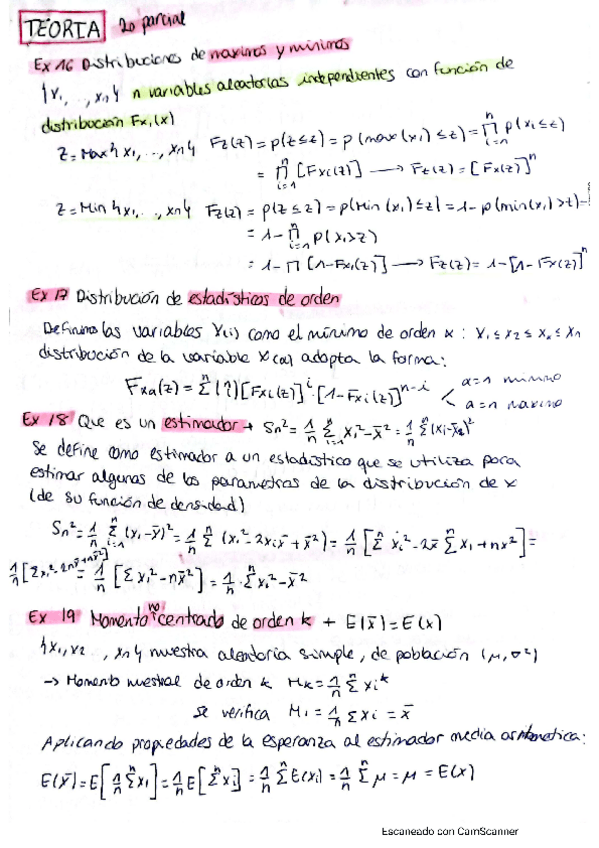 TEORIA 2o parcial
Ex 16 Distribuciones de maximos y minimos
{x₁, ..., xₙ} n variables aleatorias independientes con función de
distribución Fxᵢ(x)
Z = Max{x₁, ..., xₙ} Fz(z) = p(z≤z) = p(max(xᵢ) ≤ z) = ∏ⁿᵢ₌₁ p(xᵢ ≤ z)
= ∏ⁿᵢ₌₁ [Fxᵢ(z)] → Fz(z) = [Fx(z)]ⁿ
Z = Min{x₁, ..., xₙ} Fz(z) = p(z ≤ z) = p(Min(xᵢ) ≤ z) = 1 - p(min(xᵢ) > z) =
= 1 - ∏ⁿᵢ₌₁ p(xᵢ > z)
= 1 - ∏ [1 - Fxᵢ(z)] → Fz(z) = 1 - [1 - Fx(z)]ⁿ
Ex 17 Distribución de estadísticos de orden
Definimo las variables X(i) como el mínimo de orden α : x₁ ≤ x₂ ≤ xα ≤ xₙ
distribución de la variable X(α) adopta la forma:
Fxα(z) = Σⁿ (ⁿᵢ) [Fxᵢ(z)]ⁱ · [1 - Fxᵢ(z)]ⁿ⁻ⁱ < α=1 minimo
α=n maximo
Ex 18 Que es un estimador + Sn² = 1/n Σⁿᵢ₌₁ xᵢ² - x̄² = 1/n Σⁿ (xᵢ - x̄)²
Se define como estimador a un estadístico que se utiliza para
estimar algunas de los parametros de la distribución de x
(de su función de densidad)
Sn² = 1/n Σⁿᵢ₌₁ (xᵢ - x̄)² = 1/n Σⁿ (xᵢ² - 2xᵢx̄ + x̄²) = 1/n [Σⁿ xᵢ² - 2x̄ Σⁿ xᵢ + nx̄²] =
1/n [Σxᵢ² - 2nx̄² + nx̄²] = 1/n [Σxᵢ² - nx̄²] = 1/n · Σⁿ xᵢ² - x̄²
Ex 19 Momento no centrado de orden k + E(x̄) = E(x)
{x₁, x₂ ..., xₙ} muestra aleatoria simple, de población (μ, σ²)
→ Momento muestral de orden k Mk = 1/n Σⁿ xᵢᵏ
se verifica M₁ = 1/n Σ xᵢ = x̄
Aplicando propiedades de la esperanza al estimador media aritmetica:
E(x̄) = E[1/n Σⁿ xᵢ] = 1/n E[Σⁿ xᵢ] = 1/n Σⁿ E(xᵢ) = 1/n Σⁿ μ = μ = E(x)
Escaneado con CamScanner